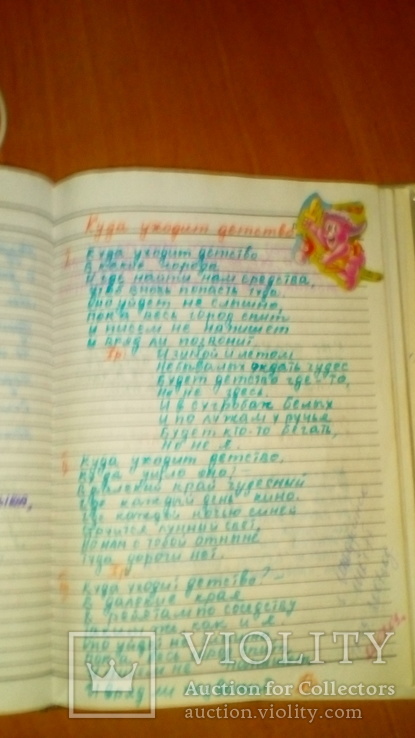 Куда уходит детство
1. Куда уходит детство
В какие города
И где найти нам средства,
Чтоб вновь попасть туда.
Оно уйдет не слышно,
Пока весь город спит
И писем не напишет
И вряд ли позвонит
Пр. И зимой и летом
Небывалых ждать чудес
Будет детство где-то,
Но не здесь.
И в сугробах белых
И по лужам у ручья
Будет кто-то бегать,
Но не я.
Куда уходит детство,
Куда ушло оно?
край чудесный
Где каждый день кино.
Где каждой ночью синей
Струится лунный свет,
Но нам с тобой отныне
Туда дороги нет.
Пр.
Куда уходит детство? -
В далекие края
К ребятам по соседству
Таким же, как и я.
Оно уйдет не слышно
весь город спит
не
И вряд ли Пр.
VIOLITY
Auction for Collectors
auction.violity.com